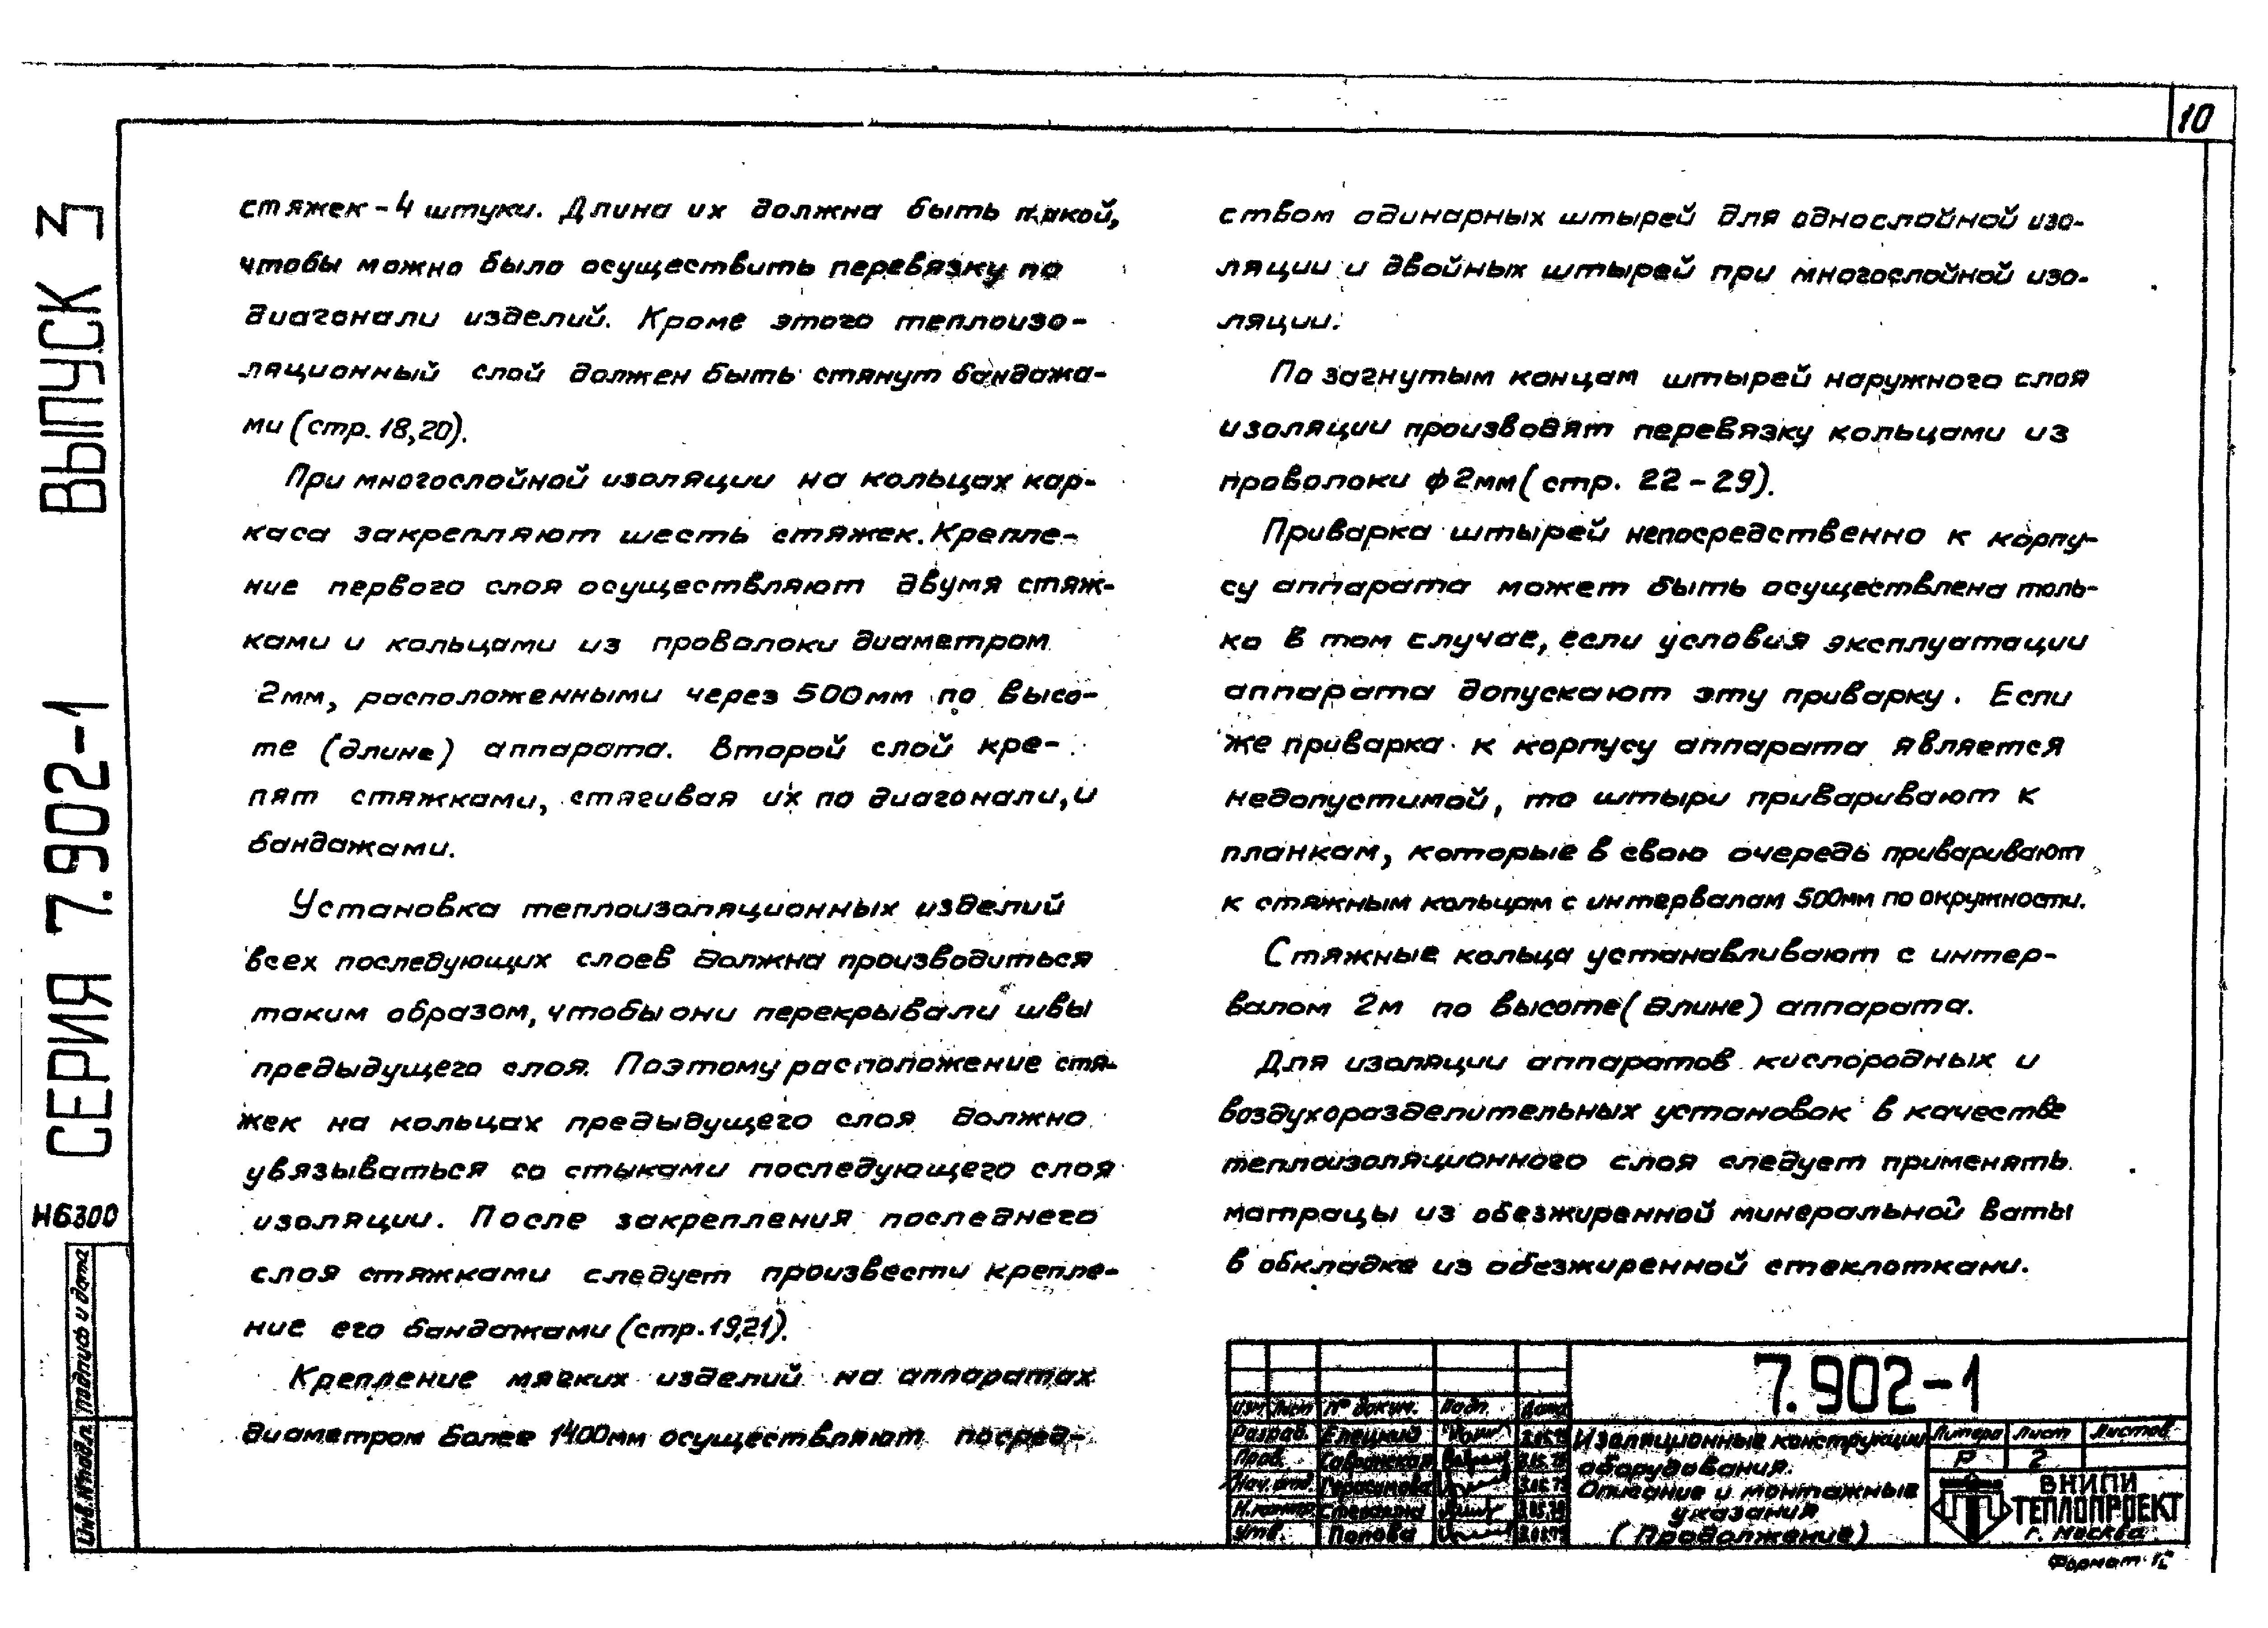 10
стяжек - 4 штуки. Длина их должна быть такой,
чтобы можно было осуществить перевязку по
диагонали изделий. Кроме этого теплоизо-
ляционный слой должен быть стянут бандажа-
ми (стр. 18,20).
При многослойной изоляции на кольцах кар-
каса закрепляют шесть стяжек. Крепле-
ние первого слоя осуществляют двумя стяж-
ками и кольцами из проволоки диаметром
2мм, расположенными через 500мм по высо-
те (длине) аппарата. Второй слой кре-
пят стяжками, стягивая их по диагонали, и
бандажами.
Установка теплоизоляционных изделий
всех последующих слоев должна производиться
таким образом, чтобы они перекрывали швы
предыдущего слоя. Поэтому расположение стя-
жек на кольцах предыдущего слоя должно
увязываться со стыками последующего слоя
изоляции. После закрепления последнего
слоя стяжками следует произвести крепле-
ние его бандажами (стр. 19,21).
Крепление мягких изделий на аппаратах
диаметром более 1400мм осуществляют посред-
ством одинарных штырей для однослойной изо-
ляции и двойных штырей при многослойной изо-
ляции.
По загнутым концам штырей наружного слоя
изоляции производят перевязку кольцами из
проволоки ф2мм (стр. 22-29).
Приварка штырей непосредственно к корпу-
су аппарата может быть осуществлена толь-
ко в том случае, если условия эксплуатации
аппарата допускают эту приварку. Если
же приварка к корпусу аппарата является
недопустимой, то штыри приваривают к
планкам, которые в свою очередь приваривают
к стяжным кольцам с интервалам 500мм по окружности.
Стяжные кольца устанавливают с интер-
валом 2м по высоте (длине) аппарата.
Для изоляции аппаратов кислородных и
воздухоразделительных установок в качестве
теплоизоляционного слоя следует применять
матрацы из обезжиренной минеральной ваты
в обкладке из обезжиренной стеклоткани.
СЕРИЯ 7.902-1 ВЫПУСК 3
Н6300
Подпись и дата
Инв.№подл.
7.902-1
Изм Лист № докум. Подп. Дата
Разраб. Елецкий
Пров.
Нач.отд. Герасимова
Н.контр.
Утв. Попова
Изоляционные конструкции
оборудования.
Описание и монтажные
указания
(Продолжение)
Литера Лист Листов
Р 2
ВНИПИ
ТЕПЛОПРОЕКТ
г. Москва
Формат 12